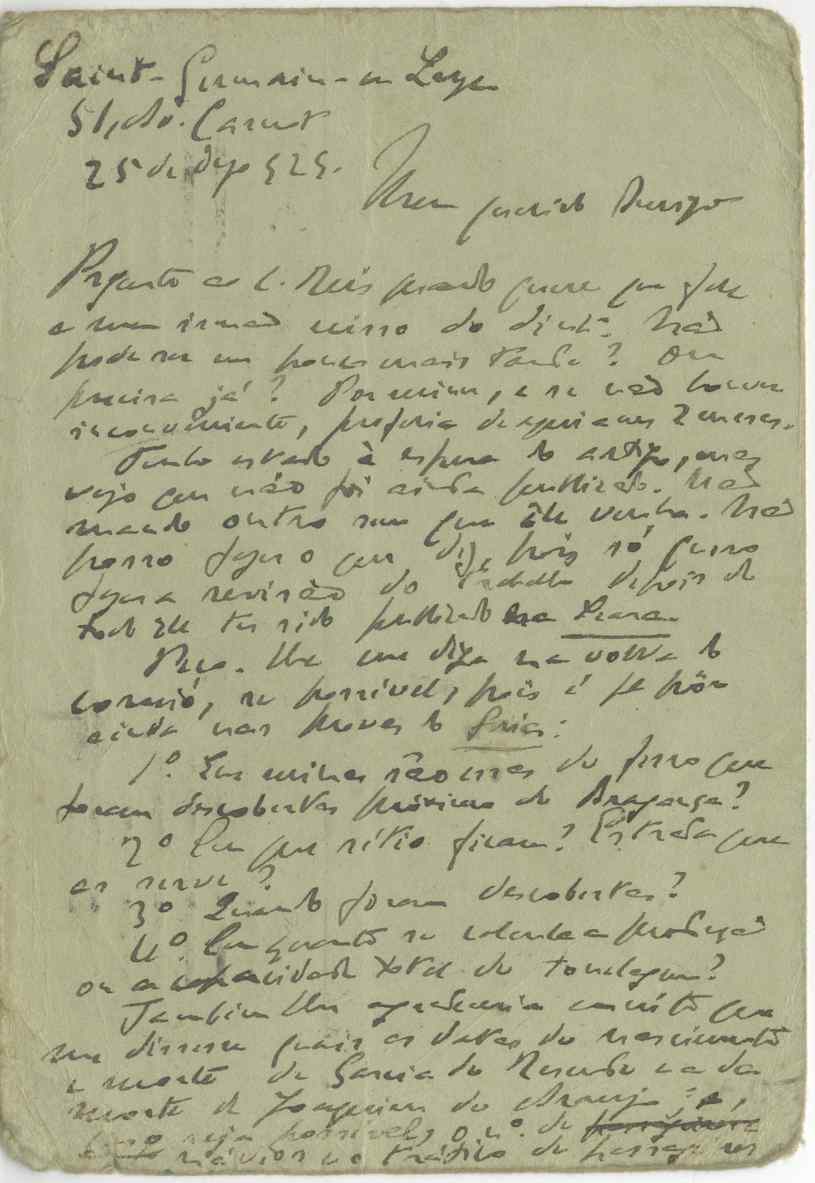 Saint-Germain-en Laye
51, Av. Carnot
25 de 929.
Meu querido Amigo
Pergunto ao C. Reis quando quere que fale
a meu irmão nisso do dinh.º. Não
pode ser um pouco mais tarde? Ou
precisa já? Por mim, e se não houver
inconveniente, preferia daqui a uns 2 meses.
Tenho estado à espera do artigo, mas
vejo que não foi ainda publicado. Não
mando outro sem que êle venha. Não
posso fazer o que diz, pois só posso
fazer a revisão do trabalho depois de
todo êle ter sido publicado na Seara.
Peço-lhe me diga na volta do
correio, se possível, pois é p.ª pôr
ainda nas provas do Guia:
1.º Em minas são essas de ferro que
foram descobertas próximo de Bragança?
2.º Em que sítio ficam? Estrada que
as serve?
3.º Quando foram descobertas?
4.º Em quanto se calcula a produção
ou a capacidade total de tonelagem?
Também lhe agradeceria muito que
me dissesse quais as datas do nascimento
e morte de Garcia de Resende e a da
morte de Joaquim de Araujo e,
caso seja possível, o n.º de passageiros
navios no tráfico de passageiros